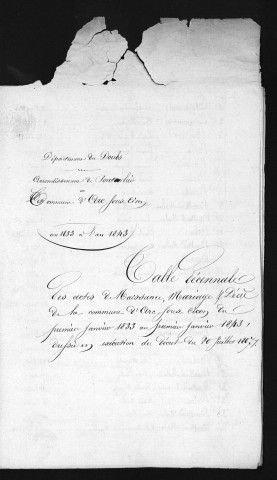 Département du Doubs
Arrondissement de Pontarlier
Commune d'Arc sous Cicon
an 1833 à l'an 1843
Table Décennale
Des actes de Naissance, Mariage & Décès
de la commune d'Arc sous Cicon du
premier janvier 1833 au premier janvier 1843,
dressée en exécution du Décret du 20 Juillet 1807